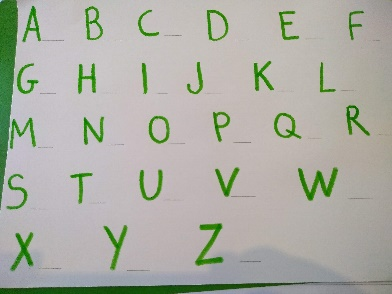 A__ B__ C__ D__ E__ F__
G__ H__ I__ J__ K__ L__
M__ N__ O__ P__ Q__ R__
S__ T__ U__ V__ W__
X__ Y__ Z__